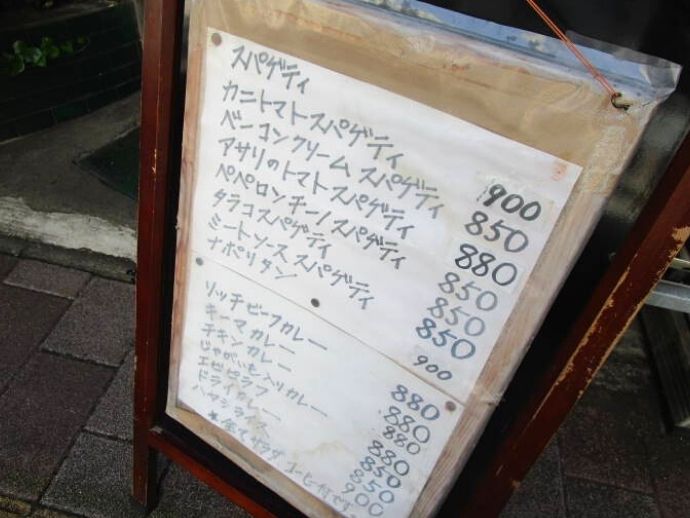 スパゲティ
カニトマトスパゲティ 900
ベーコンクリームスパゲティ 850
アサリのトマトスパゲティ 880
ペペロンチーノスパゲティ 850
タラコスパゲティ 850
ミートソーススパゲティ 850
ナポリタン 900
リッチビーフカレー 880
キーマカレー 880
チキンカレー 880
じゃがいも入りカレー 880
エビピラフ 850
ドライカレー 850
ハヤシライス 900
★全てサラダ コーヒー付です